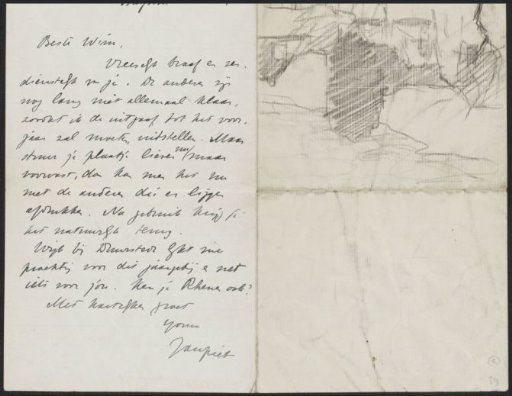 Beste Wim,
Vreeselijk braaf en ver-
dienstelijk van je. De anderen zijn
nog lang niet allemaal klaar,
zoodat ik de uitgaaf tot het voor-
jaar zal moeten uitstellen. Maar
stuur je plaatje liever nu maar
vooruit, dan kan men het nu
met de anderen die er liggen
afdrukken. Na gebruik krijg je
het natuurlijk terug.
Wijk bij Duurstede lijkt me
prachtig voor dit jaargetij en net
iets voor jou. Ken je Rhenen ook?
Met hartelijken groet
Yours
Janpiet